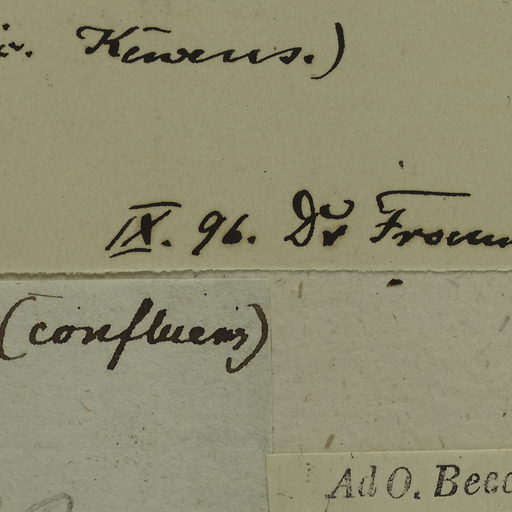 Kewens.)
IX. 96. Dr From
(confluens)
Ad O. Becc